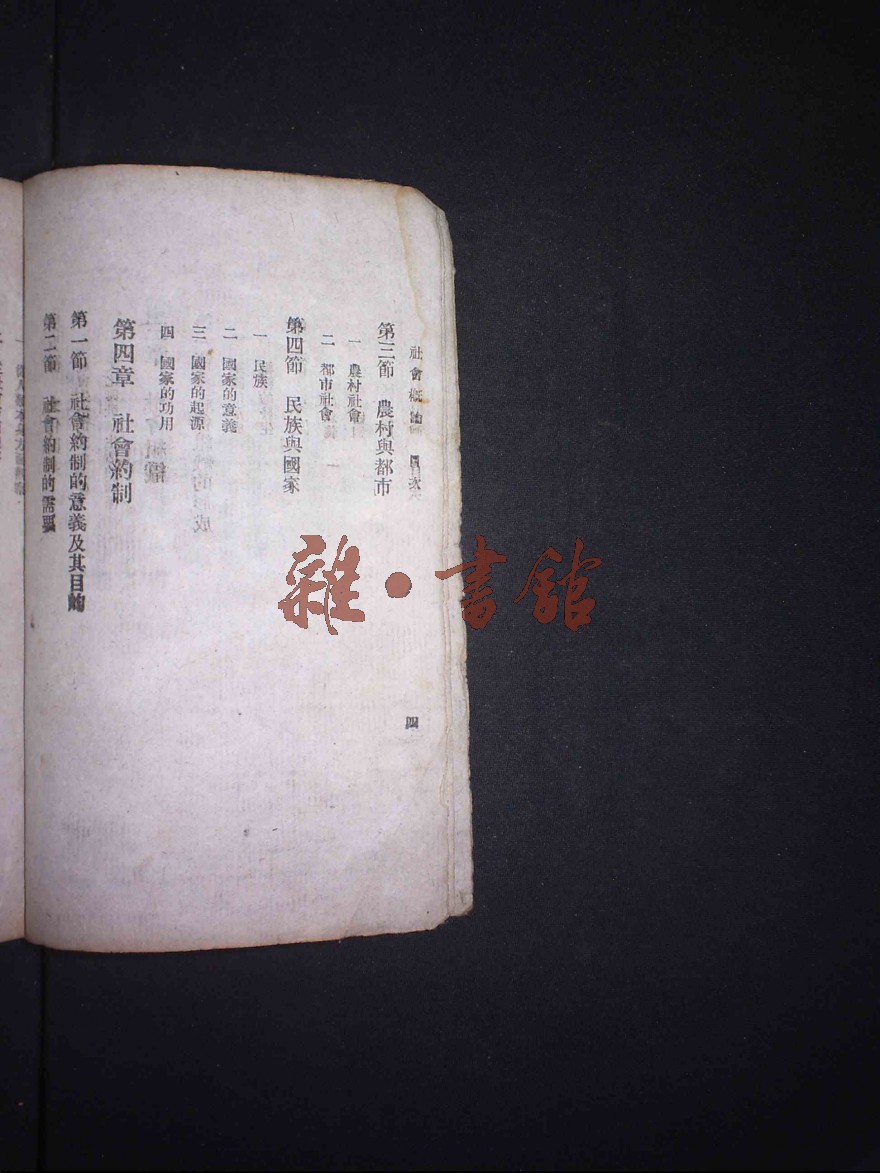 社會概論 目次
第三節 農村與都市
一 農村社會
二 都市社會
第四節 民族與國家
一 民族
二 國家的意義
三 國家的起源
四 國家的功用
第四章 社會約制
第一節 社會約制的意義及其目的
第二節 社會約制的需要
四
雜·書館